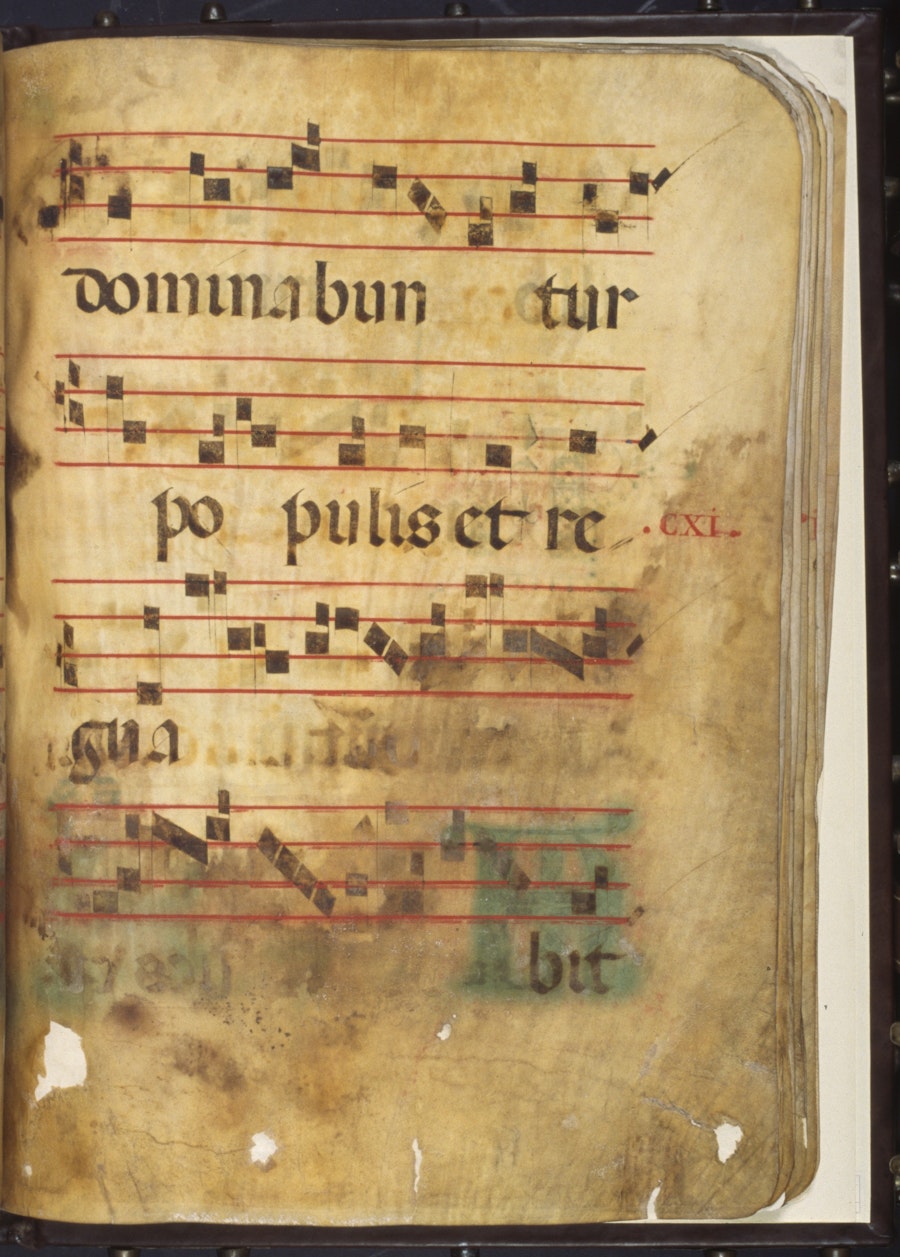 dominabun tur
po pulis et re
.CXI.
gna
bit